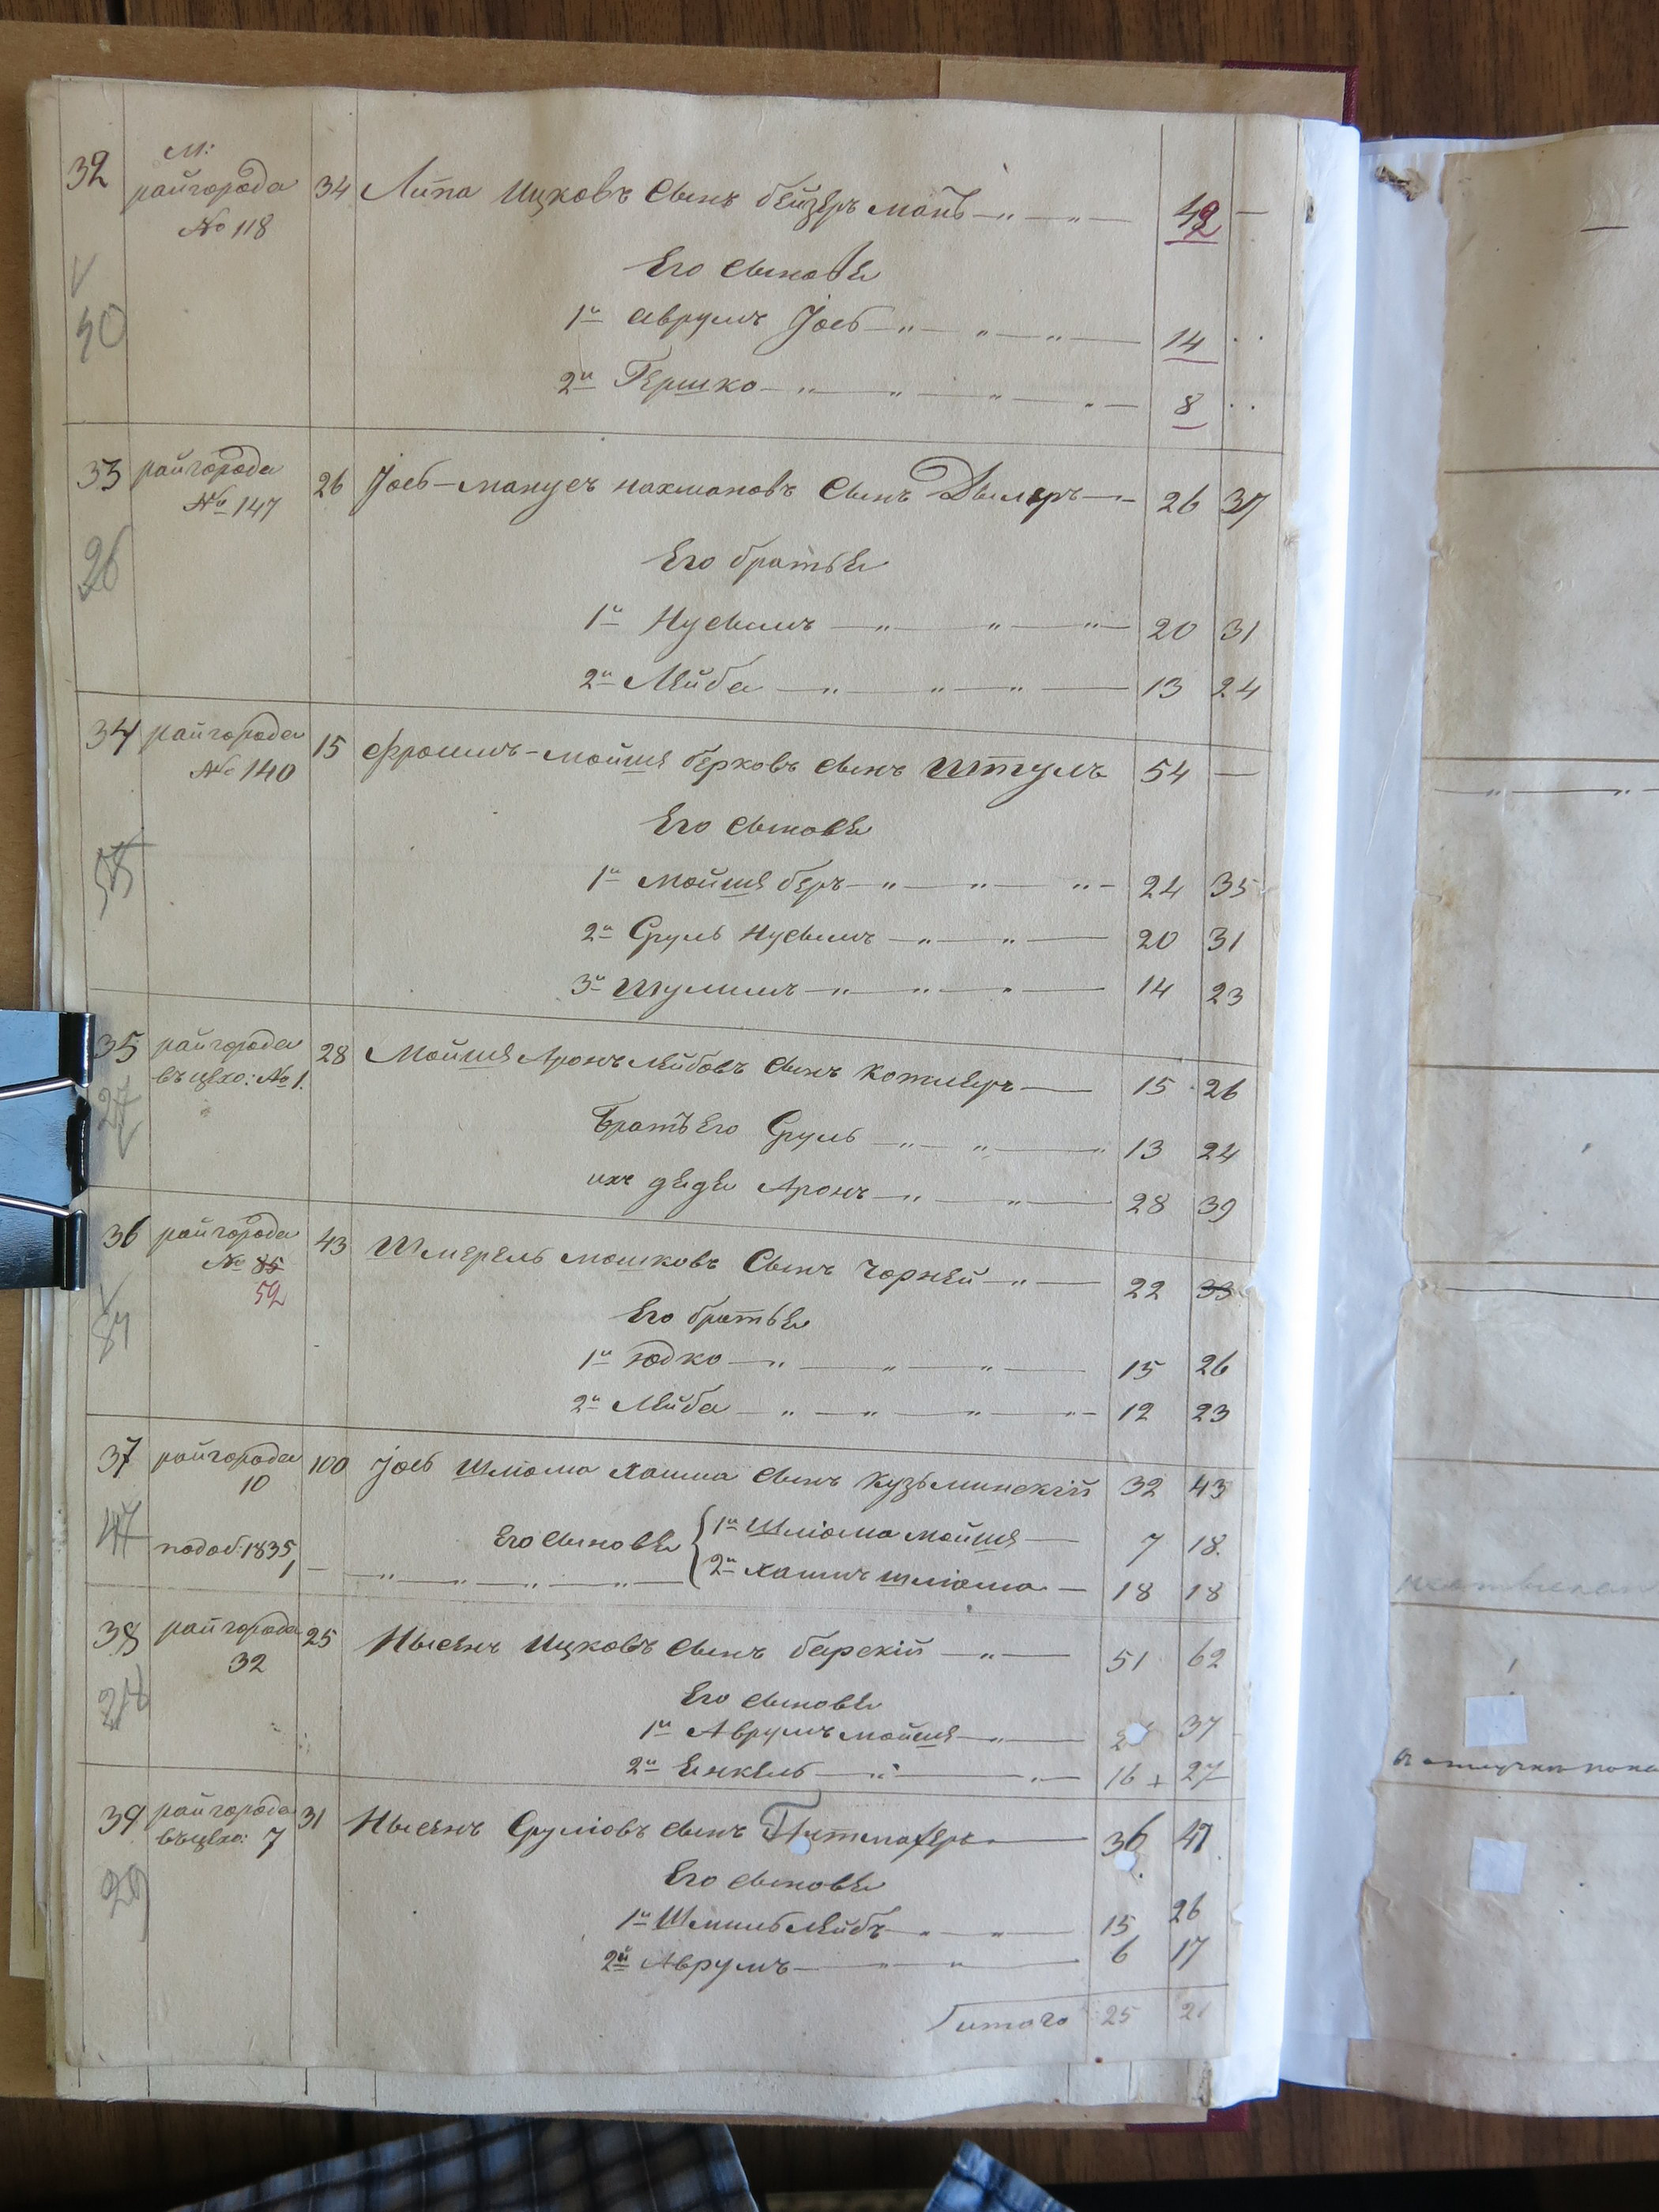 32 М: райгорода № 118 34 Липа Ицковъ сынъ бейдерманъ 42 —
40
Его сыновья
1й Аврумъ Jось 14
2й Гершко 8
33 райгорода № 147 26 Jось-манусъ нахмановъ сынъ 26 37
26
Его братья
1й Нусымъ 20 31
2й Лейба 13 24
34 райгорода № 140 15 Фроимъ-мойше берковъ сынъ Штуль 54 —
Его сыновья
1й мойше беръ 24 35
2й Сруль Нусымъ 20 31
3й Шулимъ 14 23
35 райгорода въ цехо: № 1. 28 Мойше Аронъ Лейбовъ сынъ Котляръ 15 26
27
Братъ Его Сруль 13 24
ихъ дядя Аронъ 28 39
36 райгорода № 85 52 43 Шмерель мошковъ Сынъ Чорней 22 33
Его братья
1й Юдко 15 26
2й Лейба 12 23
37 райгорода 10 100 Jось Шліома Хаима сынъ Кузьминскій 32 43
47
подоб: 1835 Его сыновья 1й Шліома мойше 7 18.
2й Хаимъ шліома 18 18
38 райгорода 32 25 Нысенъ Ицковъ сынъ барскій 51 62
Его сыновья
1й Аврумъ мойше 37
2й Енкель 16 + 27
39 райгорода въ цехо: 7 31 Нысенъ Сруліовъ сынъ 36 47
29
Его сыновья
1й Шмиль Лейбъ 15 26
2й Аврумъ 6 17
Итого 25 21